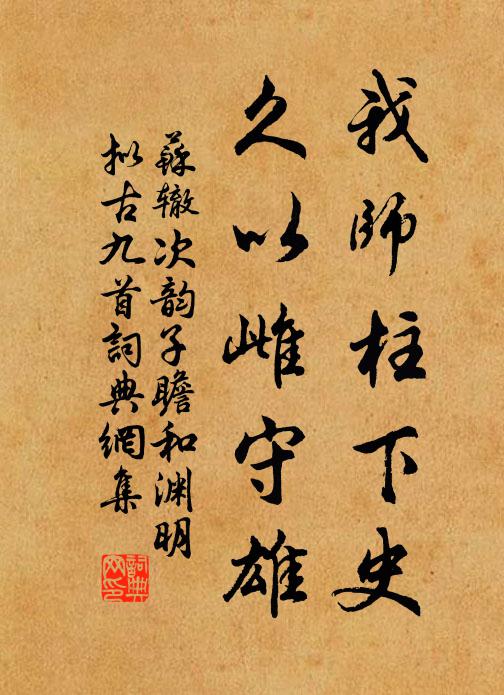 我師柱下史
久以雌守雄
蘇辙次韵子瞻和渊明
拟古九首詞典網集
詞典网印